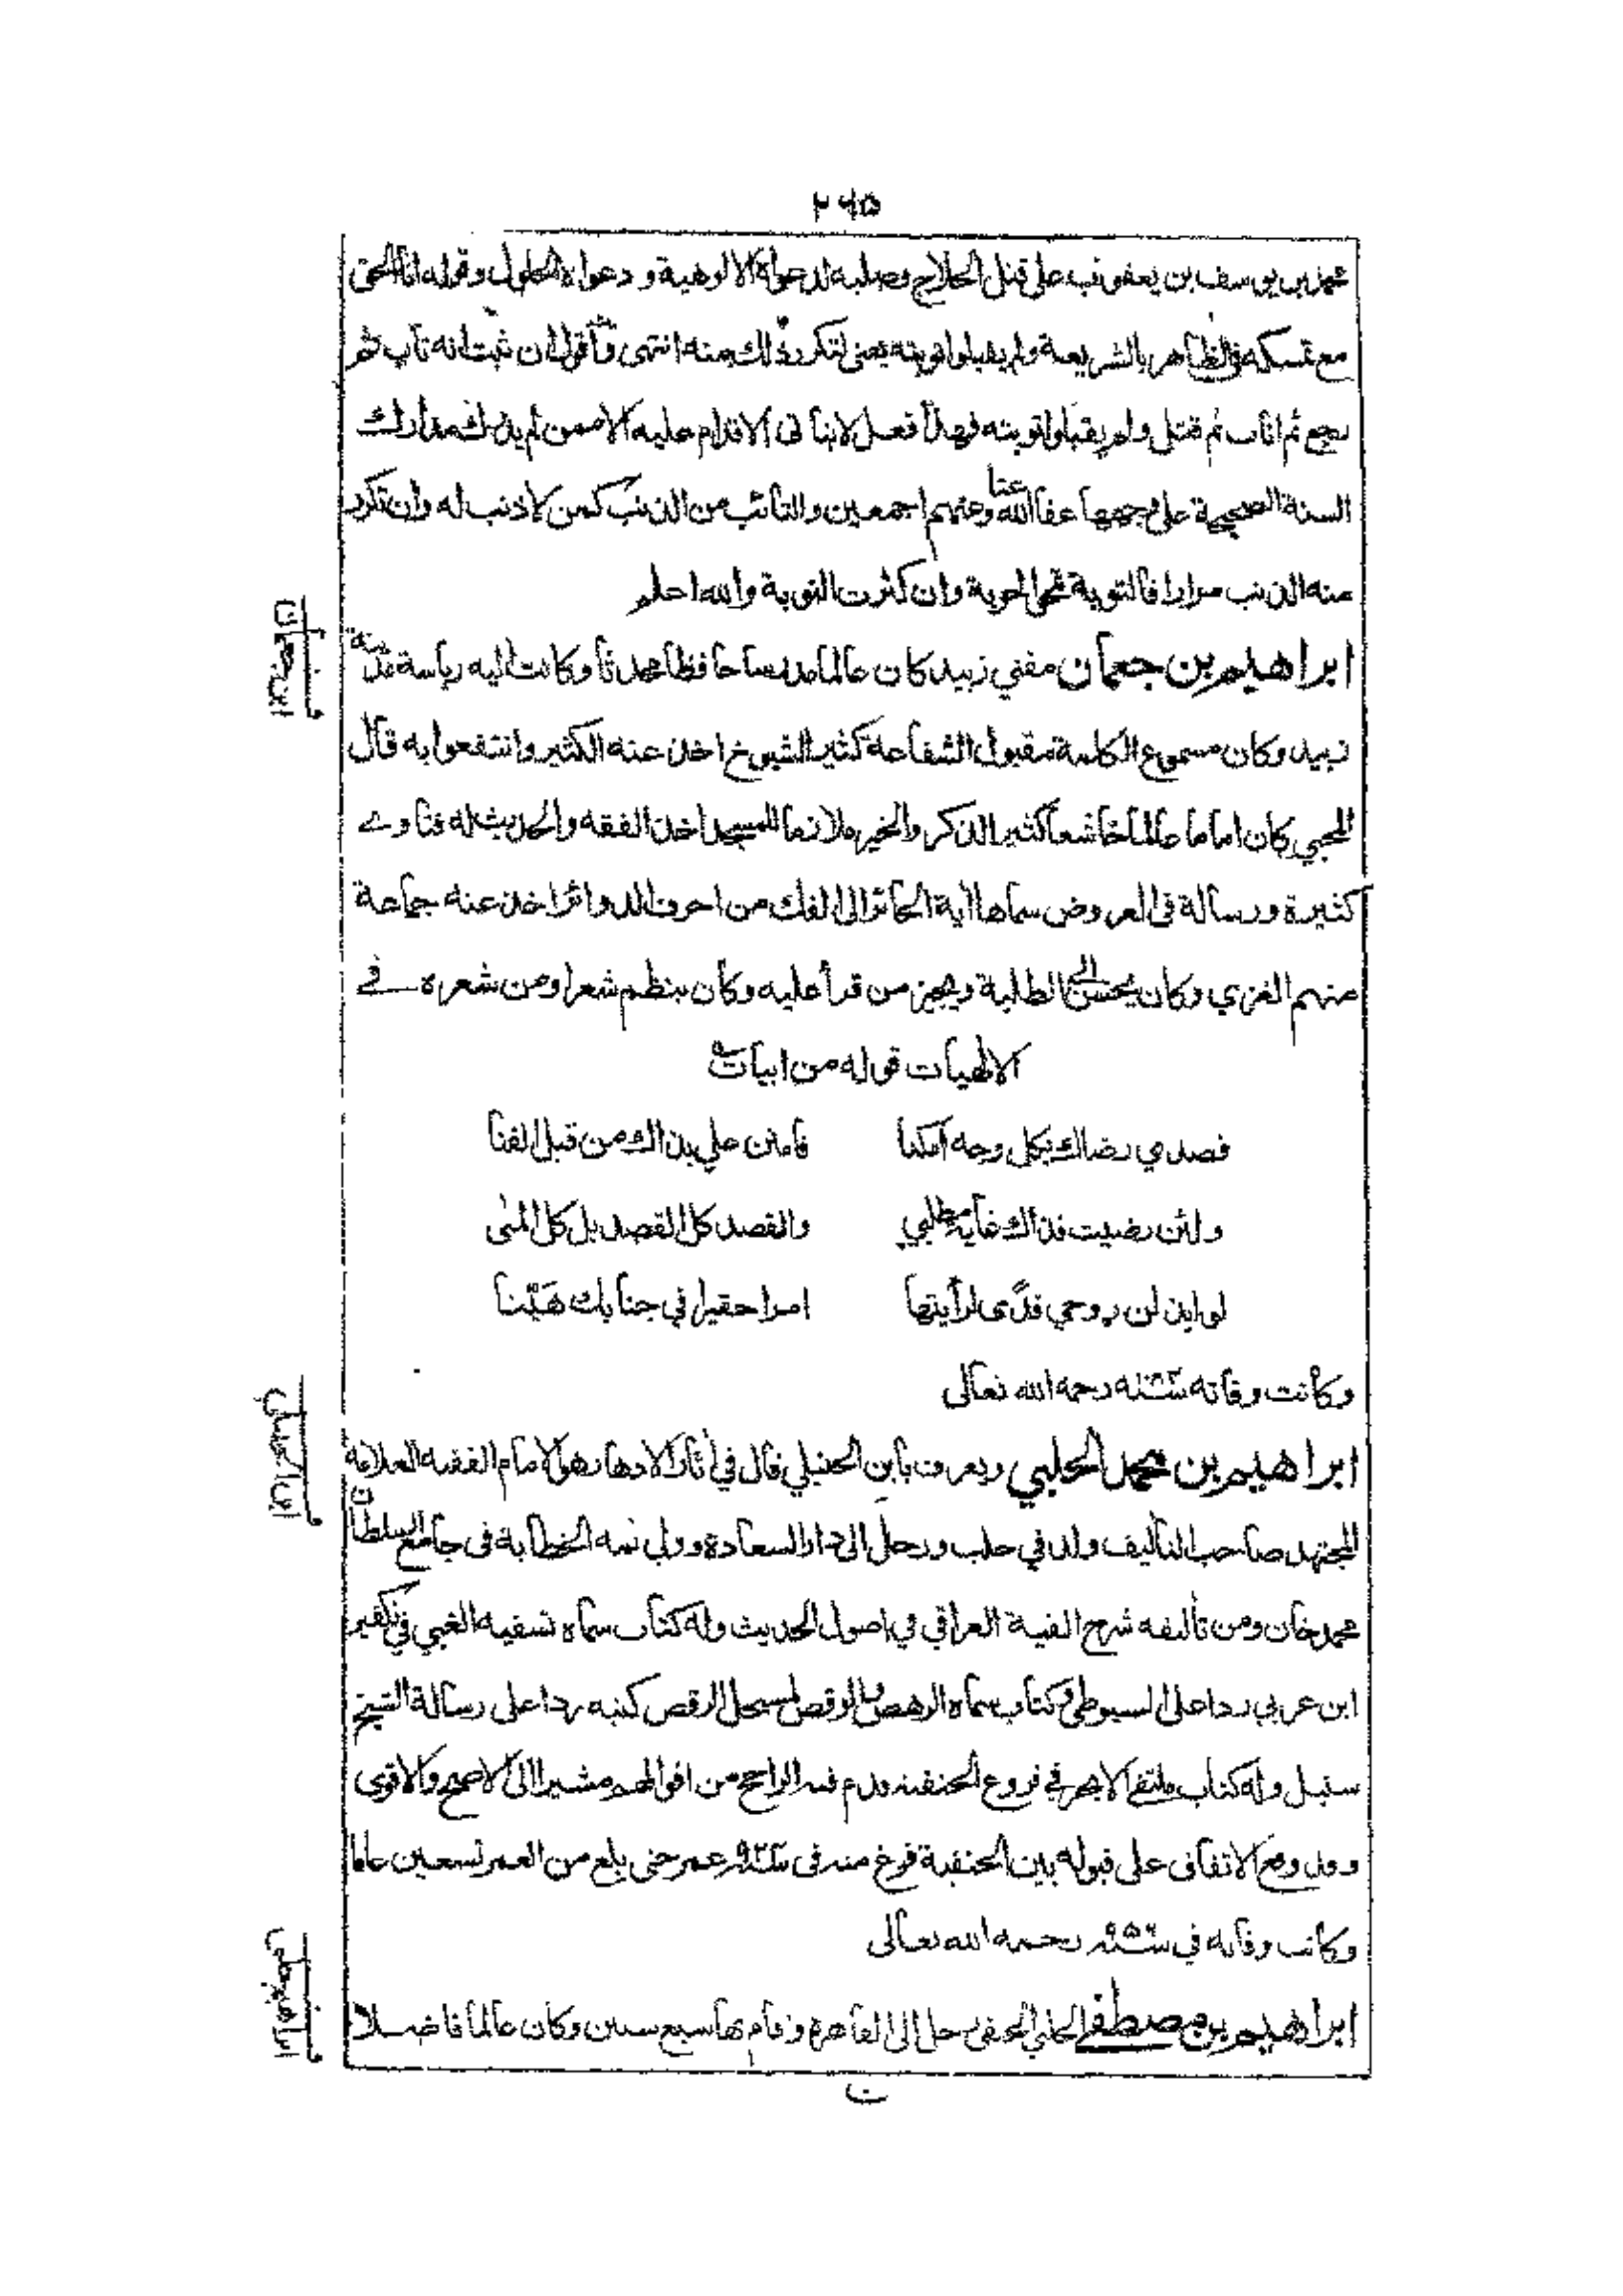 ٢٦٥
محمد بن يوسف بن يعقوب على قتل الحلاج وصلبه لدعواه الالوهية ودعواه الحلول وقوله انا الحق
مع تمسكه في الظاهر بالشريعة ولم يقبلوا توبته يعني لتكرر ذلك منه انتهى وأقول ان ثبت انه تاب ثم
رجع ثم اناب ثم قتل ولم يقبلوا توبته فهذا فعل لا يتاتى الاقدام عليه الا ممن لم يدرك مدارك
السنة الصحيحة على وجهها عفا الله عنا وعنهم اجمعين والتائب من الذنب كمن لا ذنب له وان تكرر
منه الذنب مرارا فالتوبة تمحي الحوبة وان كثرت النوبة والله اعلم
ابراهيم بن جعمان مفتي زبيد كان عالما مدرسا حافظا محدثا وكانت اليه رياسة مدينة
زبيد وكان مسموع الكلمة مقبول الشفاعة كثير الشيوخ اخذ عنه الكثير وانتفعوا به قال
المحبي كان اماما عالما خاشعا كثير الذكر والخير ملازما للمسجد اخذ الفقه والحديث له فتاوى
كثيرة ورسالة في العروض سماها اية الحائر الى الفك من احرف الدوائر اخذ عنه جماعة
منهم الغزي وكان يحسن الى الطلبة ويجيز من قرأ عليه وكان ينظم شعرا ومن شعره في
الالهيات قوله من ابيات
قصدي رضاك بكل وجه امكنا فامنن علي بذاك من قبل الفنا
ولئن رضيت فذاك غاية مطلبي والقصد كل القصد بل كل المنى
لو ابذلن روحي فدًى لرأيتها امرا حقيرا في جنابك هَيّنا
وكانت وفاته سنة رحمه الله تعالى
ابراهيم بن محمد الحلبي ويعرف بابن الحنبلي قال في آثار الادهار هو الامام الفقيه العلامة
المجتهد صاحب التأليف ولد في حلب ورحل الى دار السعادة وولي ثمه الخطابة في جامع السلطان
محمد خان ومن تأليفه شرح الفية العراقي في اصول الحديث وله كتاب سماه تسفيه الغبي في تكفير
ابن عربي ردا على السيوطي وكتاب سماه الرهص والوقص لمستحل الرقص كتبه ردا على رسالة الشيخ
سنبل وله كتاب ملتقى الابحر في فروع الحنفية قدم فيه الراجح من اقوالهم مشيرا الى الاصح والاقوى
وقد وقع الاتفاق على قبوله بين الحنفية فرغ منه في سنة ٩٢٣ عمر حتى بلغ من العمر تسعين عاما
وكانت وفاته في سنة ٩٥٦ رحمه الله تعالى
ابراهيم بن مصطفى الحلبي الحنفي رحل الى القاهرة وقام بها سبع سنين وكان عالما فاضلا
ت
ابن جعمان
ابن الحنبلي
ابراهيم حلبي